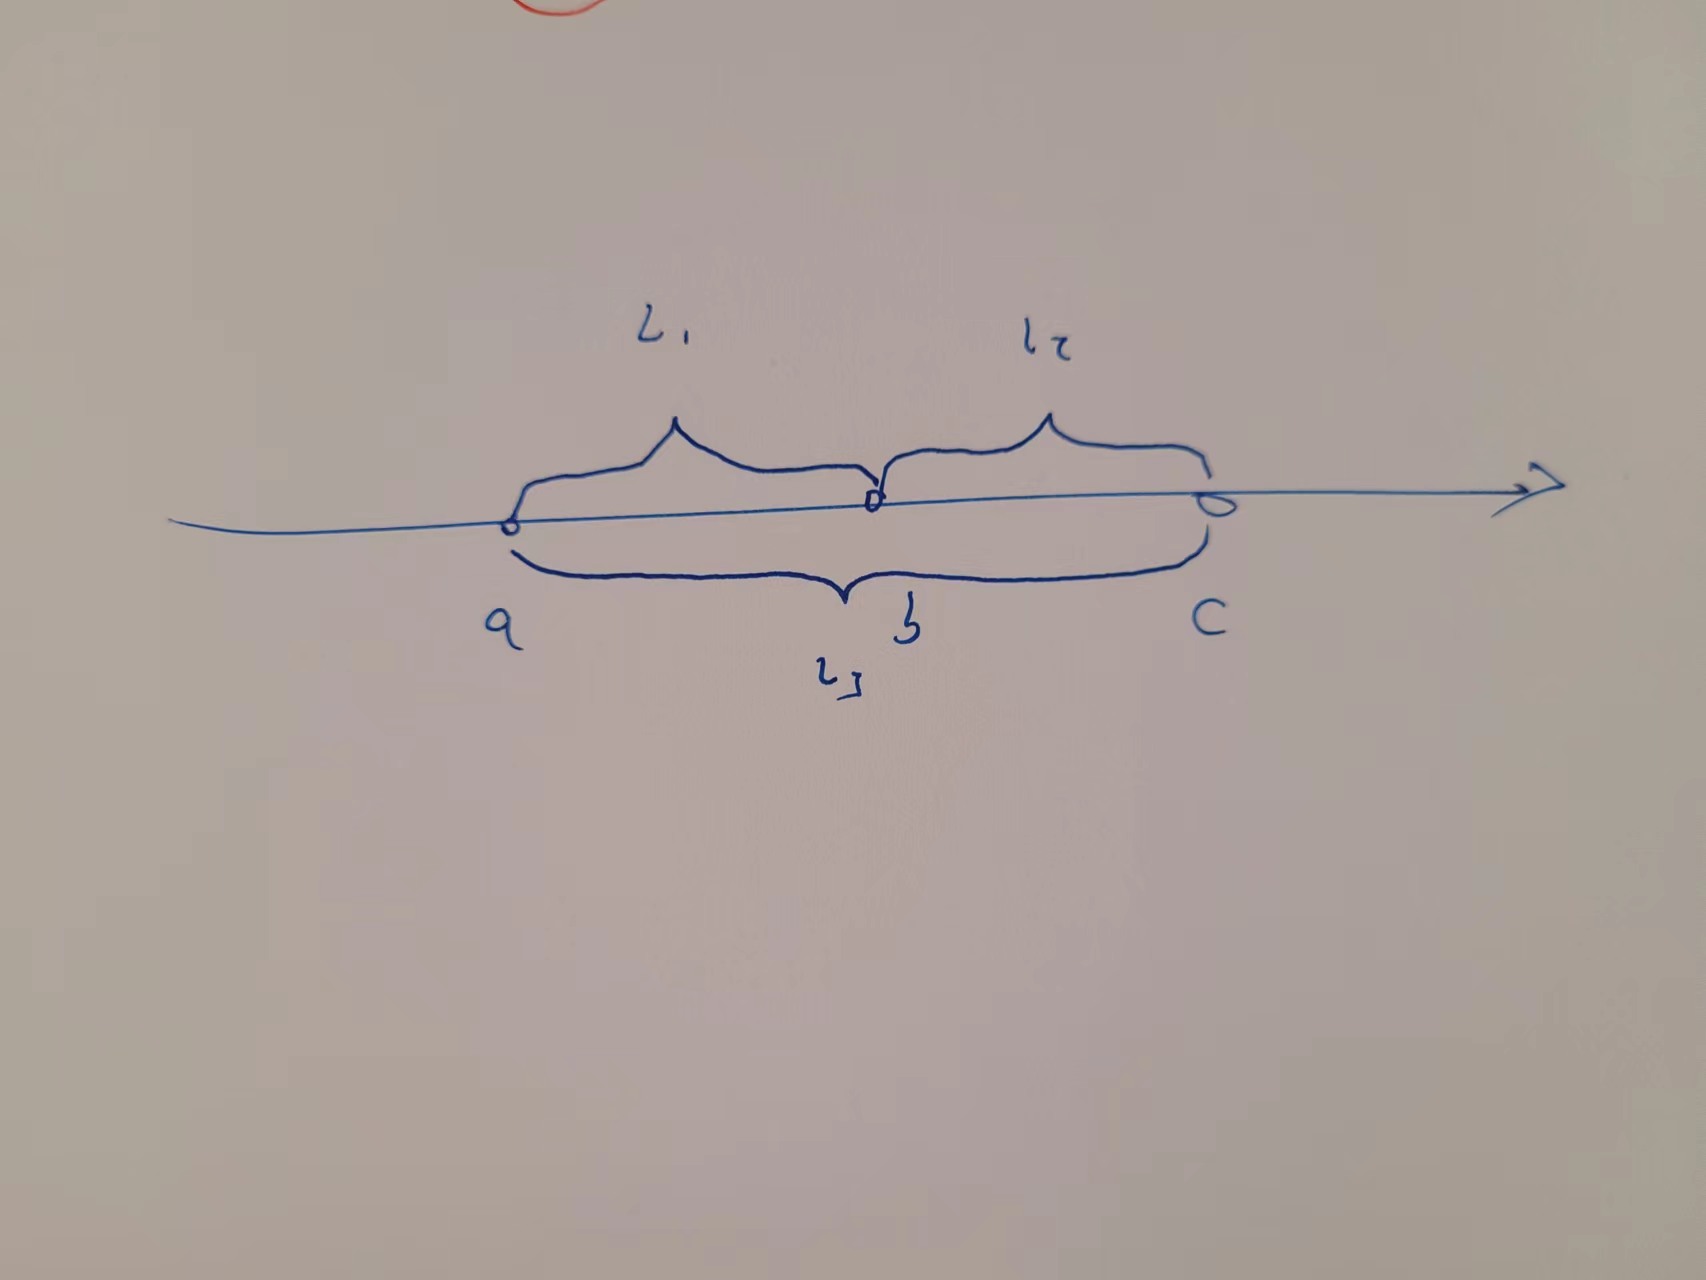 L1 l2
a b c
l3